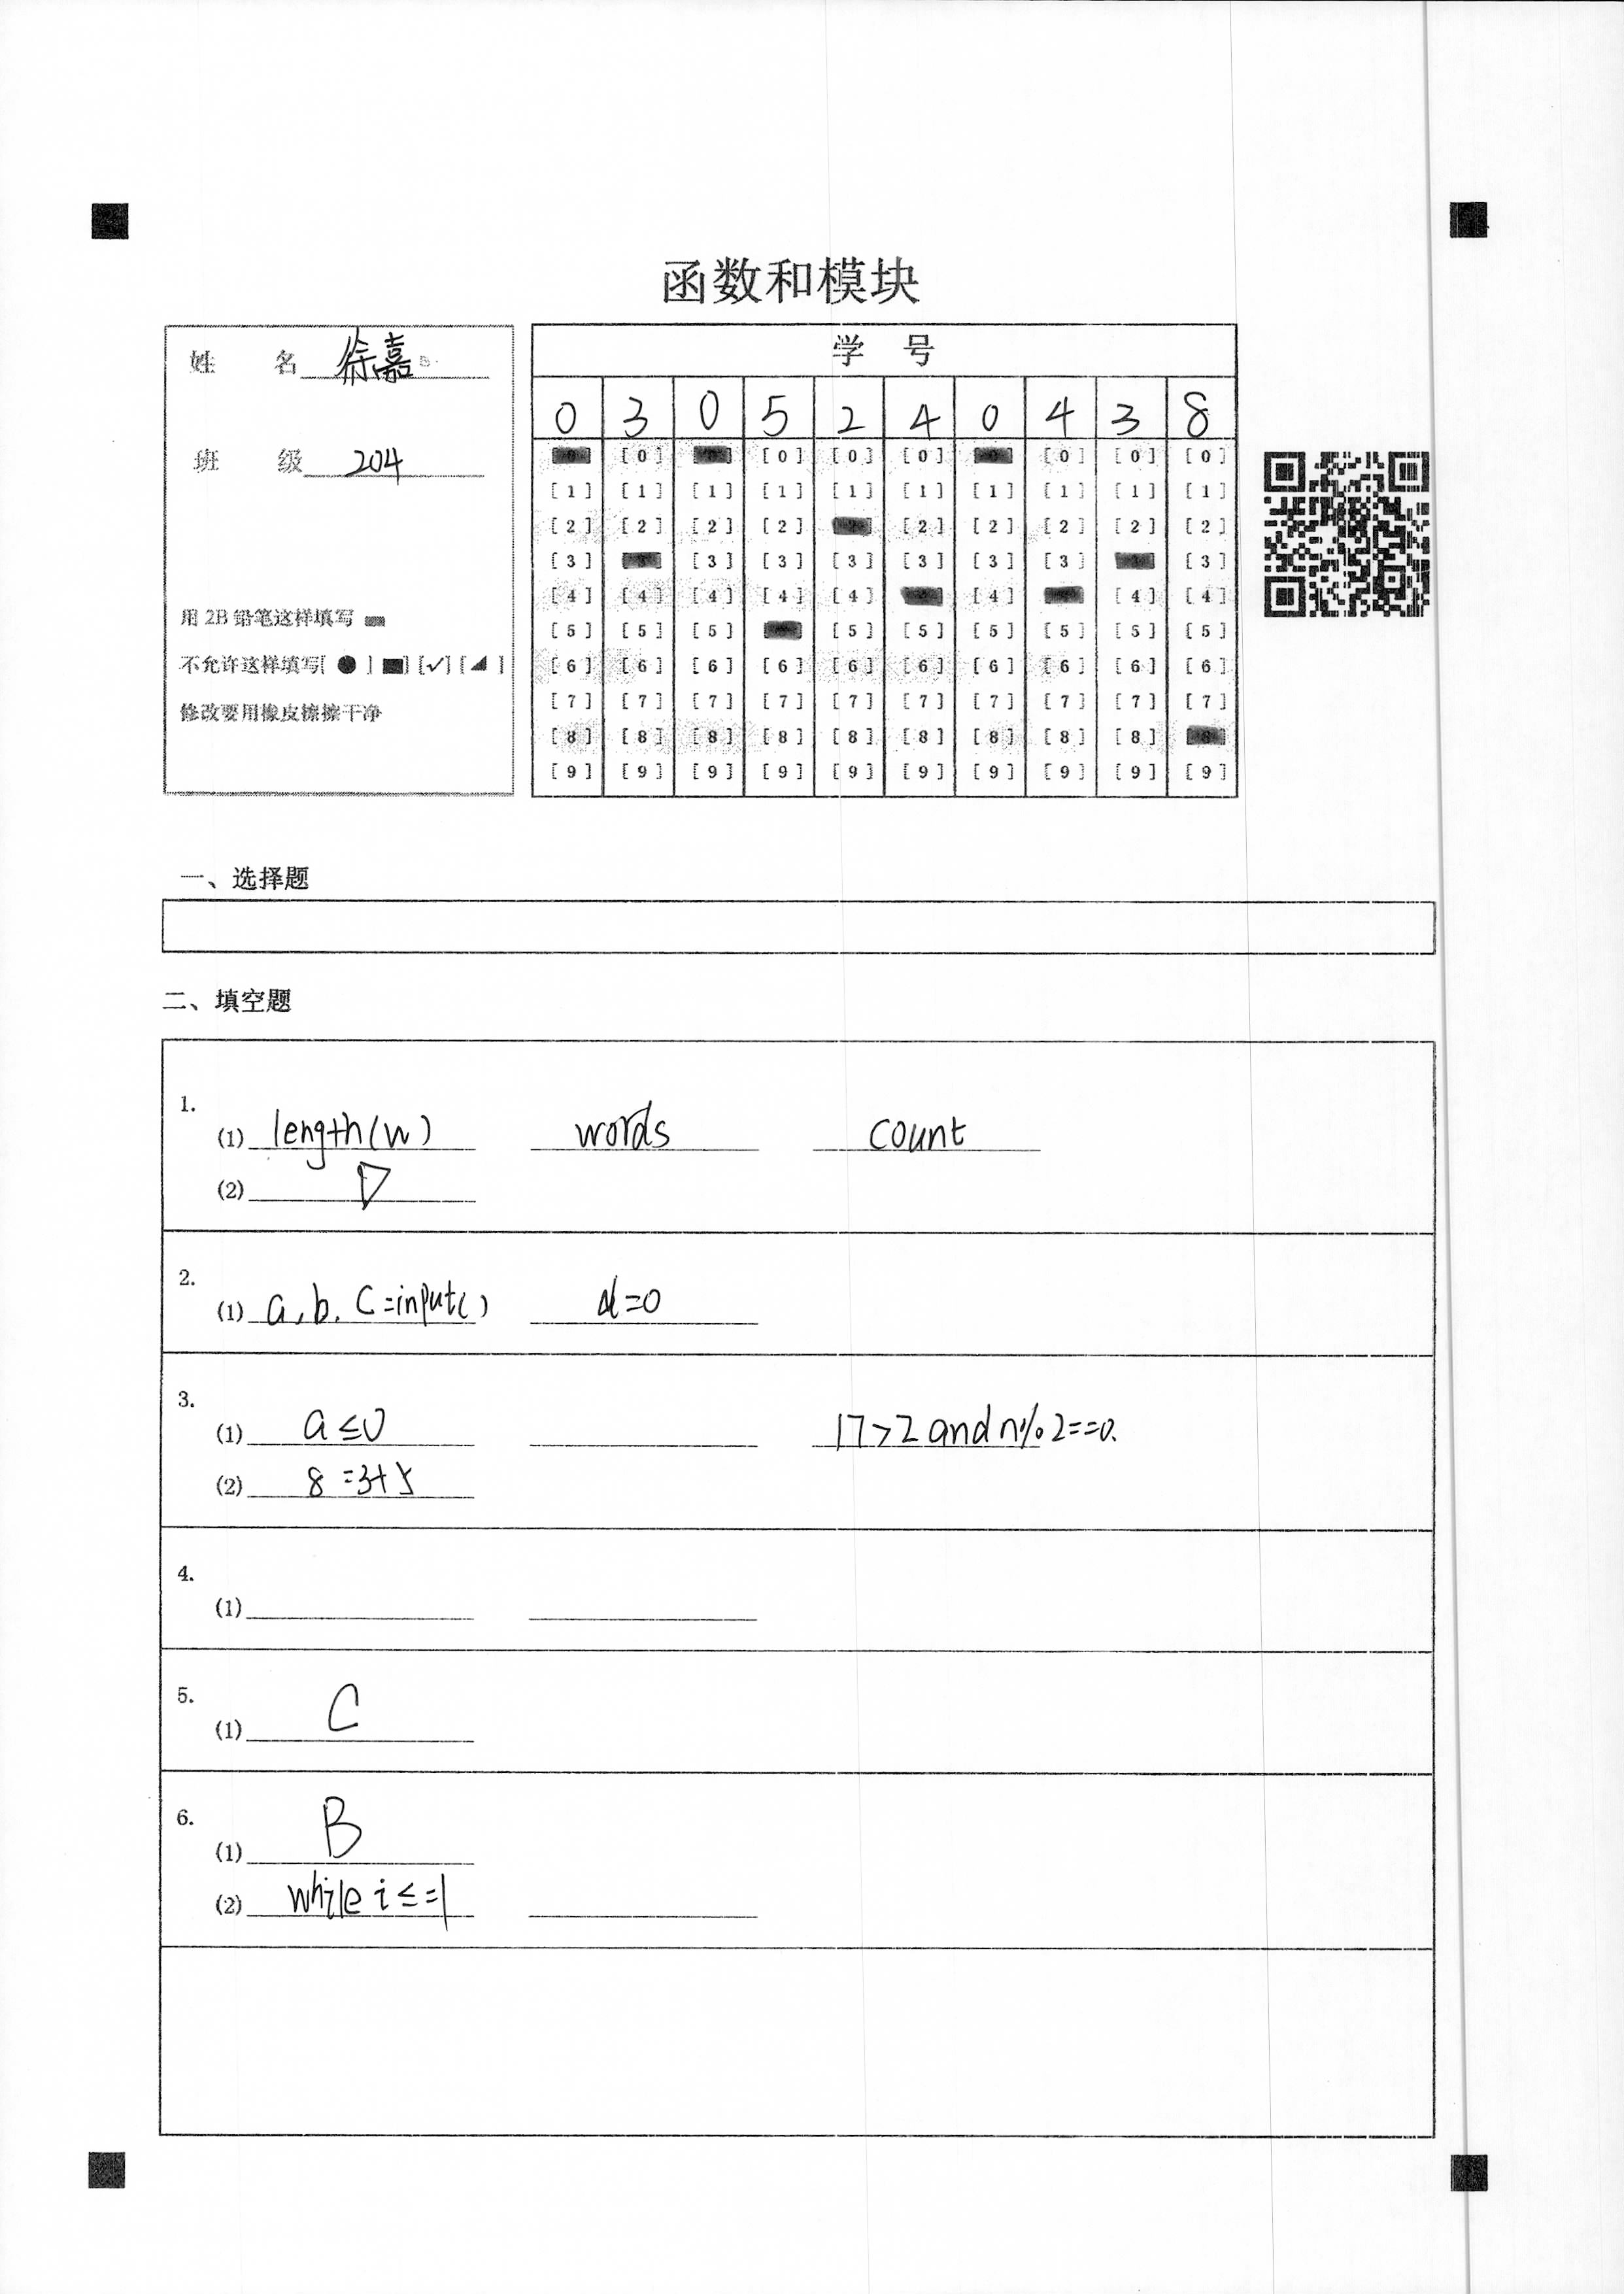 函数和模块
姓 名 徐嘉
班 级 204
用 2B 铅笔这样填写
不允许这样填写[ ● ] ■] [✓] [ ◢ ]
修改要用橡皮擦擦干净
学 号
0 3 0 5 2 4 0 4 3 8
[0] [0] [0] [0] [0] [0] [0] [0] [0] [0]
[1] [1] [1] [1] [1] [1] [1] [1] [1] [1]
[2] [2] [2] [2] [2] [2] [2] [2] [2] [2]
[3] [3] [3] [3] [3] [3] [3] [3] [3] [3]
[4] [4] [4] [4] [4] [4] [4] [4] [4] [4]
[5] [5] [5] [5] [5] [5] [5] [5] [5] [5]
[6] [6] [6] [6] [6] [6] [6] [6] [6] [6]
[7] [7] [7] [7] [7] [7] [7] [7] [7] [7]
[8] [8] [8] [8] [8] [8] [8] [8] [8] [8]
[9] [9] [9] [9] [9] [9] [9] [9] [9] [9]
一、选择题
二、填空题
1.
(1) length(w) words count
(2) D
2.
(1) a,b. c=input() d=0
3.
(1) a≤0 17>2 and n%2==0.
(2) 8=3+5
4.
(1)
5.
(1) C
6.
(1) B
(2) while i≤=1